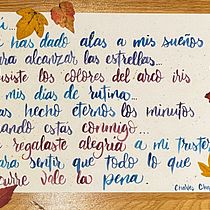 ú...
has dado alas a mis sueños
ara alcanzar las estrellas...
usiste los colores del arco iris
mis días de rutina...
as hecho eternos los minutos
ando estás conmigo...
regalaste alegría a mi triste
ara sentir que todo lo que
urre vale la pena.
Charles Cha